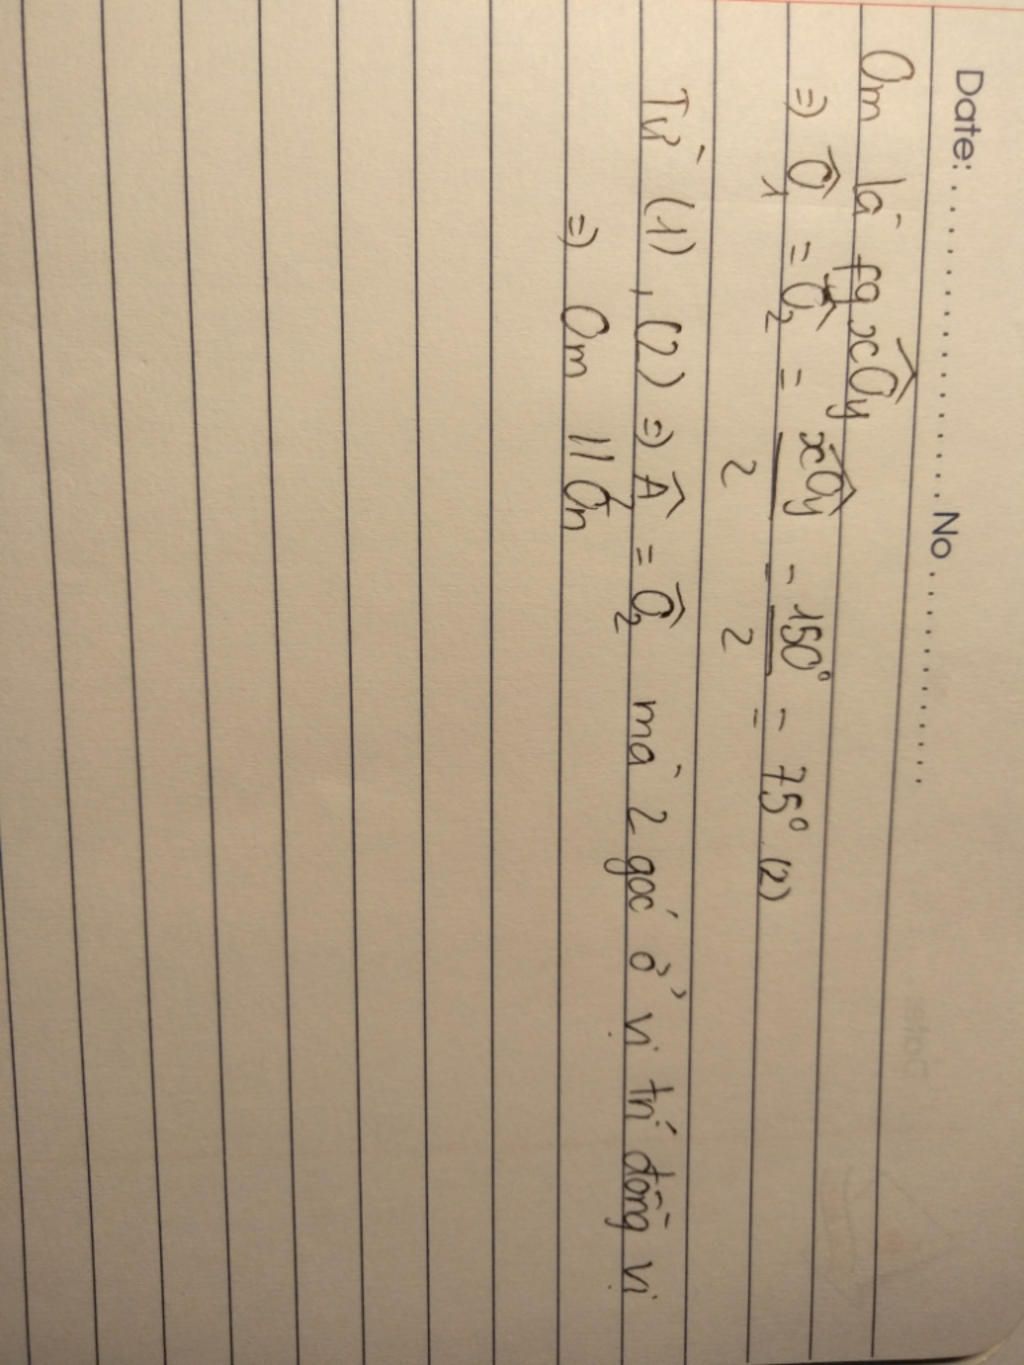 Date: ........................ No ................
Om là fg xOy
⇒ Ô₁ = Ô₂ = xOy/2 = 150°/2 = 75° (2)
Từ (1), (2) ⇒ Â = Ô₂ mà 2 góc ở vị trí đồng vị
⇒ Om // On